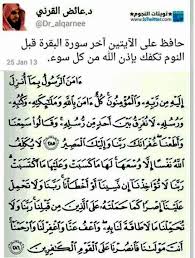 د.عائض القرني
@Dr_alqarnee
تويتات النجوم
www.IsTwitter.com
حافظ على الآيتين آخر سورة البقرة قبل
النوم تكفك بإذن الله من كل سوء.
25 Jan 13
ءَامَنَ ٱلرَّسُولُ بِمَآ أُنزِلَ
إِلَيْهِ مِن رَّبِّهِۦ وَٱلْمُؤْمِنُونَ كُلٌّ ءَامَنَ بِٱللَّهِ وَمَلَٰٓئِكَتِهِۦ
وَكُتُبِهِۦ وَرُسُلِهِۦ لَا نُفَرِّقُ بَيْنَ أَحَدٍ مِّن رُّسُلِهِۦ وَقَالُوا۟
سَمِعْنَا وَأَطَعْنَا غُفْرَانَكَ رَبَّنَا وَإِلَيْكَ ٱلْمَصِيرُ ٢٨٥ لَا يُكَلِّفُ
ٱللَّهُ نَفْسًا إِلَّا وُسْعَهَا لَهَا مَا كَسَبَتْ وَعَلَيْهَا مَا ٱكْتَسَبَتْ
رَبَّنَا لَا تُؤَاخِذْنَآ إِن نَّسِينَآ أَوْ أَخْطَأْنَا رَبَّنَا وَلَا تَحْمِلْ
عَلَيْنَآ إِصْرًا كَمَا حَمَلْتَهُۥ عَلَى ٱلَّذِينَ مِن قَبْلِنَا رَبَّنَا وَلَا
تُحَمِّلْنَا مَا لَا طَاقَةَ لَنَا بِهِۦ وَٱعْفُ عَنَّا وَٱغْفِرْ لَنَا وَٱرْحَمْنَآ
أَنتَ مَوْلَىٰنَا فَٱنصُرْنَا عَلَى ٱلْقَوْمِ ٱلْكَٰفِرِينَ ٢٨٦